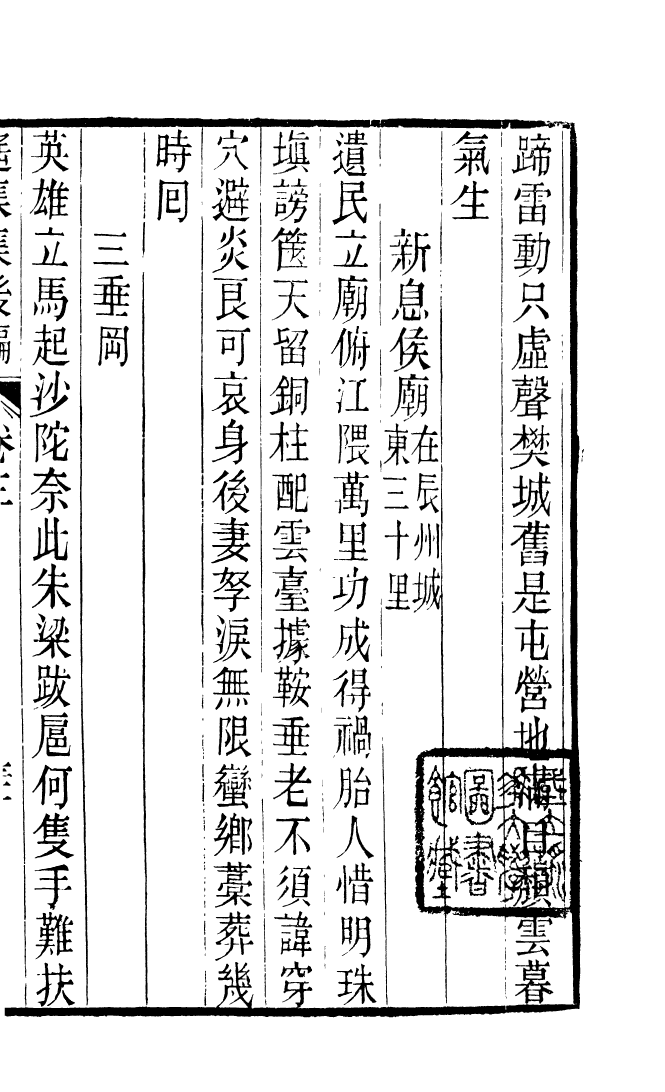 蹄雷動只虛聲樊城舊是屯營地滿目頹雲暮
氣生
新息侯廟在辰州城東三十里
遺民立廟俯江隈萬里功成得禍胎人惜明珠
塡謗篋天留銅柱配雲臺據鞍垂老不須諱穿
穴避炎良可哀身後妻孥淚無限蠻鄉藁葬幾
時回
三垂岡
英雄立馬起沙陀奈此朱梁跋扈何隻手難扶